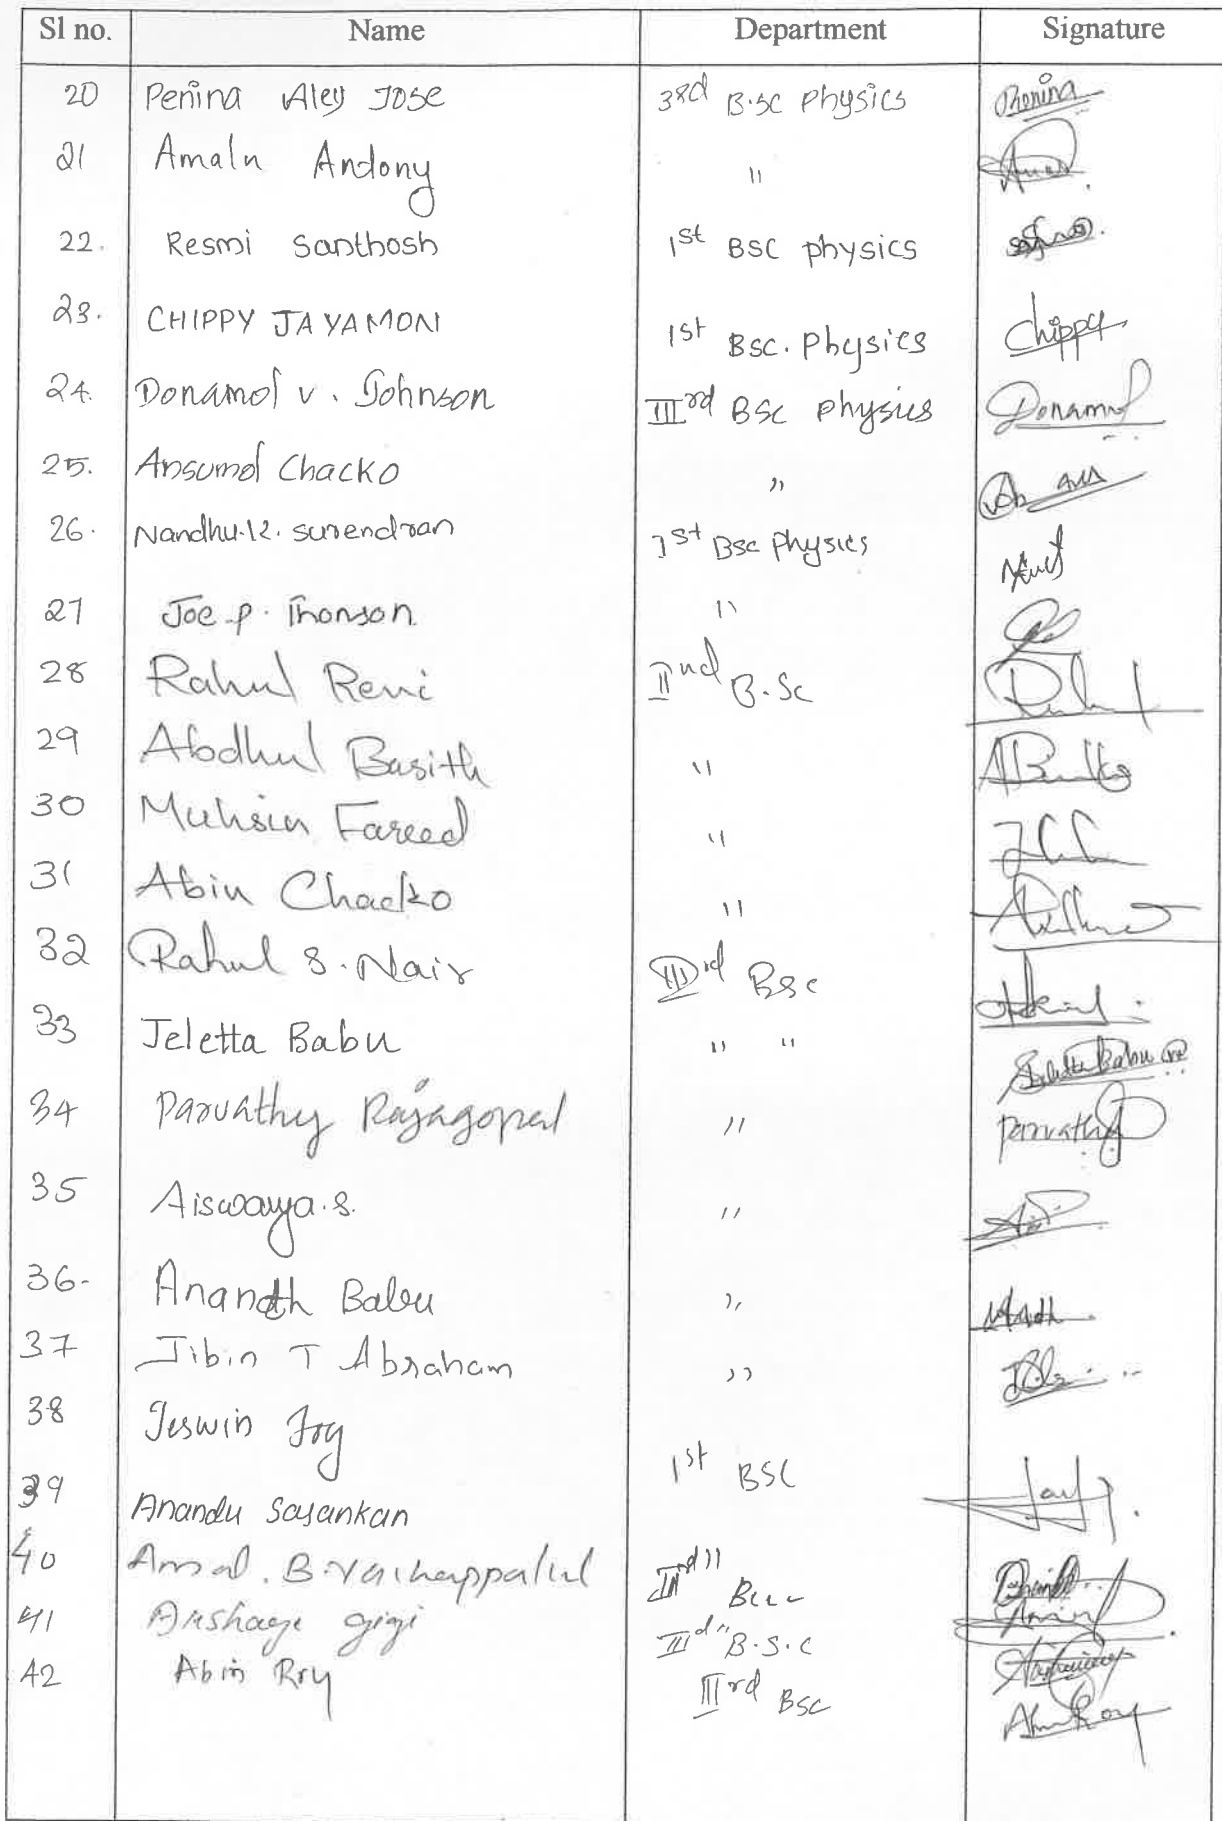 Sl no. Name Department Signature
20 Penina Aley Jose 3rd B.sc physics Penina
21 Amaln Andony "
22. Resmi Santhosh 1st BSC physics
23. CHIPPY JAYAMON 1st Bsc. Physics Chippy
24. Donamol v. Johnson IIIrd BSc physics Donamol
25. Ansumol Chacko "
26. Nandhu.K. surendran 1st Bsc physics
27 Joe p. Thomson "
28 Rahul Reni IInd B.Sc
29 Abdhul Basith "
30 Muhsin Fareed "
31 Abin Chacko "
32 Rahul S. Nair IIIrd BSc
33 Jeletta Babu " " Jeletta Babu
34 Parvathy Rajagopal " Parvathy
35 Aiswarya.S. "
36. Anandh Babu "
37 Jibin T Abraham "
38 Jeswin Joy
39 Anandu Sasankan 1st BSC
40 Amal. B. IIIrd "
41 gigi IIIrd " B.S.C
42 Abin Roy IIIrd BSC